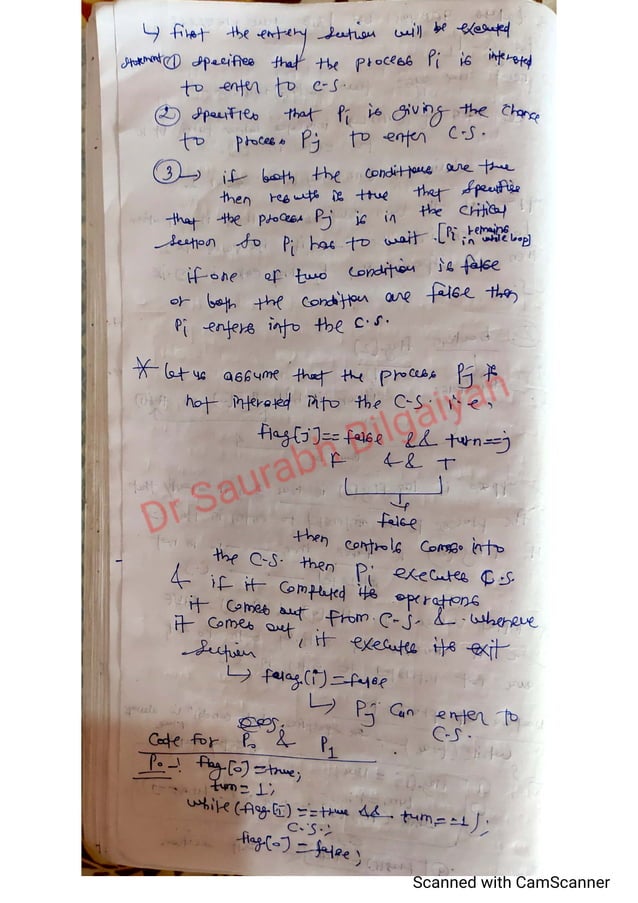 ↳ first the entery section will be executed
statement ① specifies that the process Pi is interested
to enter to C-S.
② specifies that Pi is giving the chance
to process Pj to enter C.S.
③→ if both the conditions are true
then results is true that specifies
that the process Pj is in the critical
section so Pi has to wait. [Pi remains
in while loop]
if one of two condition is false
or both the condition are false then
Pi enters into the C.S.
* let us assume that the process Pj is
not interested into the C-S. i-e,
flag[j]==false && turn==j
F && T
↓
false
then controls comes into
the C-S. then Pi executes C.S.
& if it completed its operations
it comes out from C-S. & whenever
it comes out, it executes its exit
section
↳ flag(i)=false
↳ Pj can enter to
C-S.
Code for P0 & P1
P0 -! flag[0]=true;
turn=1;
while(flag[1]==true && turn==1);
C.S.;
flag[0]=false;
Dr Saurabh Bilgaiyan
Scanned with CamScanner